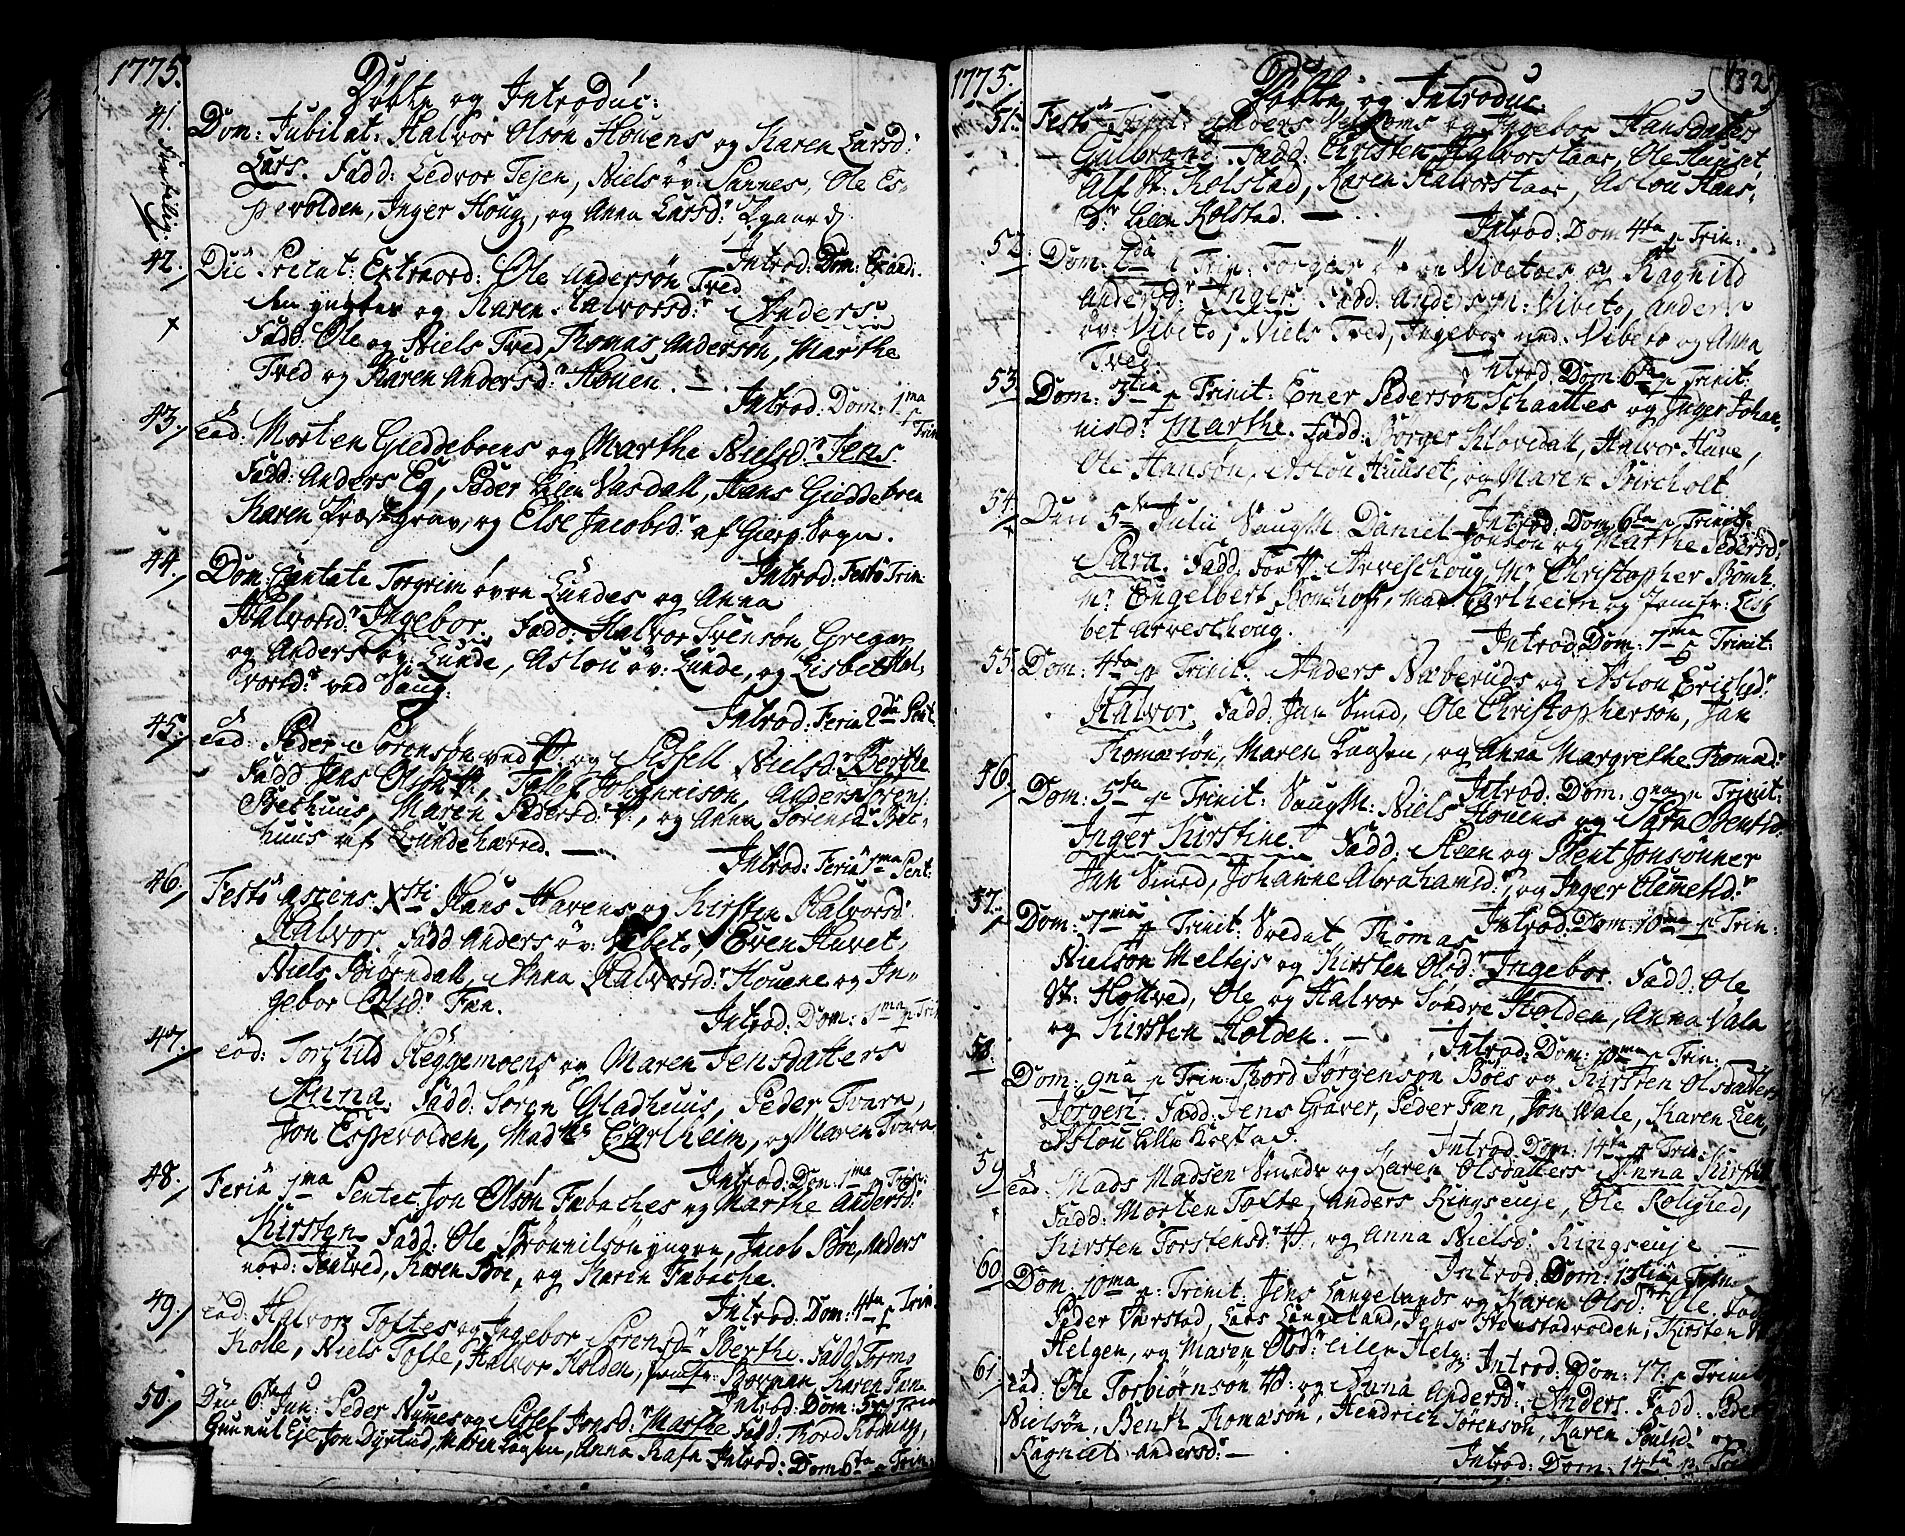 1775.
Døbte og Introduc:
41. Dom: Jubilat: Halvor Olsøn Houens og Karen Larsd:
Lars. Fadd: Ledvor Tejen, Niels öv: Sannes, Ole Es-
pevolden, Inger Houg, og Anna Larsd:
Introd: Dom: Exaudi.
42. Die Precat: Extraord: Ole Andersøn Tved
den yngres og Karen Halvorsd:r Anders
Fadd: Ole og Niels Tved, Thomas Andersøn, Marthe
Tved og Karen Andersd:r Houen. -.
Introd: Dom: 1ma p Trin
43. ead: Morten Gieddeboens og Marthe Nielsd:r Jens
Fadd: Anders Eg, Peder Eilen Vasdall, Hans Gieddeboen
Karen Præstgrav, og Else Jacobsd:r af Gierp. Sogn.
Introd: Festo Trin:
44. Dom: Cantate Torgrim övre Lundes og Anna
Halvorsd:r Ingebor. Fadd: Halvor Svensøn Gregar
og Anders öv: Lunde, Aslou öv: Lunde, og Lisbet Hal-
vorsd:r ved Saug:
Introd: Feria 2da Pent.
45. ead: Peder Sörensøn ved og Sissell Nielsd:r Berthe
Fadd Jens Olsøn, Tollef Johannisøn, Anders Sörens:
Brechuus, Maren Pedersd:r, og Anna Sörensd:r Brec-
huus af Lundehærred. -.
Introd: Feria 1ma Pent:
46. Festo Ascens Xsti Hans Havens og Kirsten Halvorsd:
Halvor. Fadd Anders öv: Vibeto, Even Huvet,
Niels Biörndall, Anna Halvorsd:r Houene og In-
gebor Olsd:r Fæn.
Introd: Dom: 1ma p Trin
47. ead: Torchild Heggemoens og Maren Jensdatters
Anna. Fadd: Sören Gladhuus, Peder Tvara,
Jon Espevolden, Mad:me Carlheim, og Maren Tvara
Introd: Dom: 1ma p Trin:
48. Feria 1ma Pentec: Jon Olsøn Fabaches og Marthe Andersd:
Kirsten Fadd: Ole Brönnilsøn yngre, Jacob Böe, Anders
nord: Holtved, Karen Böe, og Karen Fabache.
Introd: Dom: 4ta p Trin.
49. ead: Halvor Toftes og Ingebor Sörensd:r Berthe. Fadd Tormo
Kolle, Niels Tofte, Halvor Holden, Jomfr: Borman Karen Fæn
Introd: Dom: 5t p Trin
50. Den 6te Jun: Peder Numes og Sissel Jonsd:r Marthe Fadd: Tord
Gunnul Eje Jon Dyrlud, Maren Lagsen, Anna Kasa Introd: Dom 6ta p Trin:
1775.
132
Døbte og Introduc:
51. Festo Trinit: og Ingebor Hansdatter
Gulbrand. Fadd: Christen Halvorstaar, Ole Huuset
Alf St: Kolstad, Karen Halvorstaar, Aslou Hans-
D:r Lien Kolstad. -
Introd: Dom 4ta p Trin:
52. Dom: 2da p Trin: Torger Vibetoes og Ragnild
Andersd:r Inger. Fadd: Anders yn: Vibeto, Anders
öv: Vibeto, Niels Tved, Ingebor ned: Vibeto og Anna
Tved.
Introd: Dom: 6ta p Trinit:
53. Dom: 3tia p Trinit: Ener Pedersøn Schaattes og Inger Johan-
nisd:r Marthe. Fadd: Börger Klovedall, Halvor Huve,
Ole Hansøn, Aslou Huuset, og Maren Kircholt.
Introd: Dom: 6ta p Trinit:
54. Den 5te Julii Saug M. Daniel Jonsøn og Marthe Pedersd:r
Sara. Fadd. Arveschoug, Mr Christopher Bomh.
Mr Engelbert Bomhoff, Mad Carlheim og Jomfr: Lis-
bet Arveschoug.
Introd. Dom: 7ma p Trinit:
55. Dom: 4ta p Trinit: Anders Næberuds og Aslou Erichsd:
Halvor. Fadd: Jan Smed, Ole Christophersøn, Jan
Thomæsøn, Maren Lagsen, og Anna Margrethe Thomæd:
Introd: Dom: 9na p Trinit:
56. Dom: 5ta p Trinit: Saug M: Niels Houens og Sara Bentsd:
Inger Kirstine. Fadd: Steen og Bent Jonsønner
Jan Smed, Johanne Abrahamsd:r, og Inger Clemetsd:r
Introd: Dom: 10ma p Trin:
57. Dom: 7ma p Trinit: Soldat Thomas
Nielsøn Meltejs og Kirsten Olsd:r Ingebor. Fadd: Ole
St: Holtved, Ole og Halvor Söndre Holden, Anna Vala
og Kirsten Holden. -
Introd: Dom: 10ma p Trin:
58. Dom: 9na p Trin: Thord Jörgensøn Böes og Kirsten Olsdatters
Jörgen. Fadd: Jens Graver, Peder Fæn, Jon Vale, Karen Lien,
Aslou Lille Kolstad.
Introd: Dom: 14ta p Trin:
59. ead: Mads Madsen Smeds og Karen Olsdatters Anna Kirstin
Fadd: Morten Tofte, Anders Ringseuje, Ole Rolighed,
Kirsten Torstensd:r, og Anna Nielsd: Ringseuje -
Introd: Dom: 13tia p Trin.
60. Dom 10ma p: Trinit: Jens Langelands og Karen Olsd:r Ole. Fadd
Peder Værstad, Lars Langeland, Jens Hönstadvolden, Kirsten
Helgen, og Maren Olsd:r Eilen Helg:
Introd: Dom: 17. p Trinit:
61. ead: Ole Torbiörnsøn og Anna Andersd: Anders. Fadd: Peder
Nielsøn, Benth Thomæsøn, Hendrich Sörensøn, Karen Poulsd: og
Ragnild Andersd:r -
Introd: Dom: 14ta p. Trin